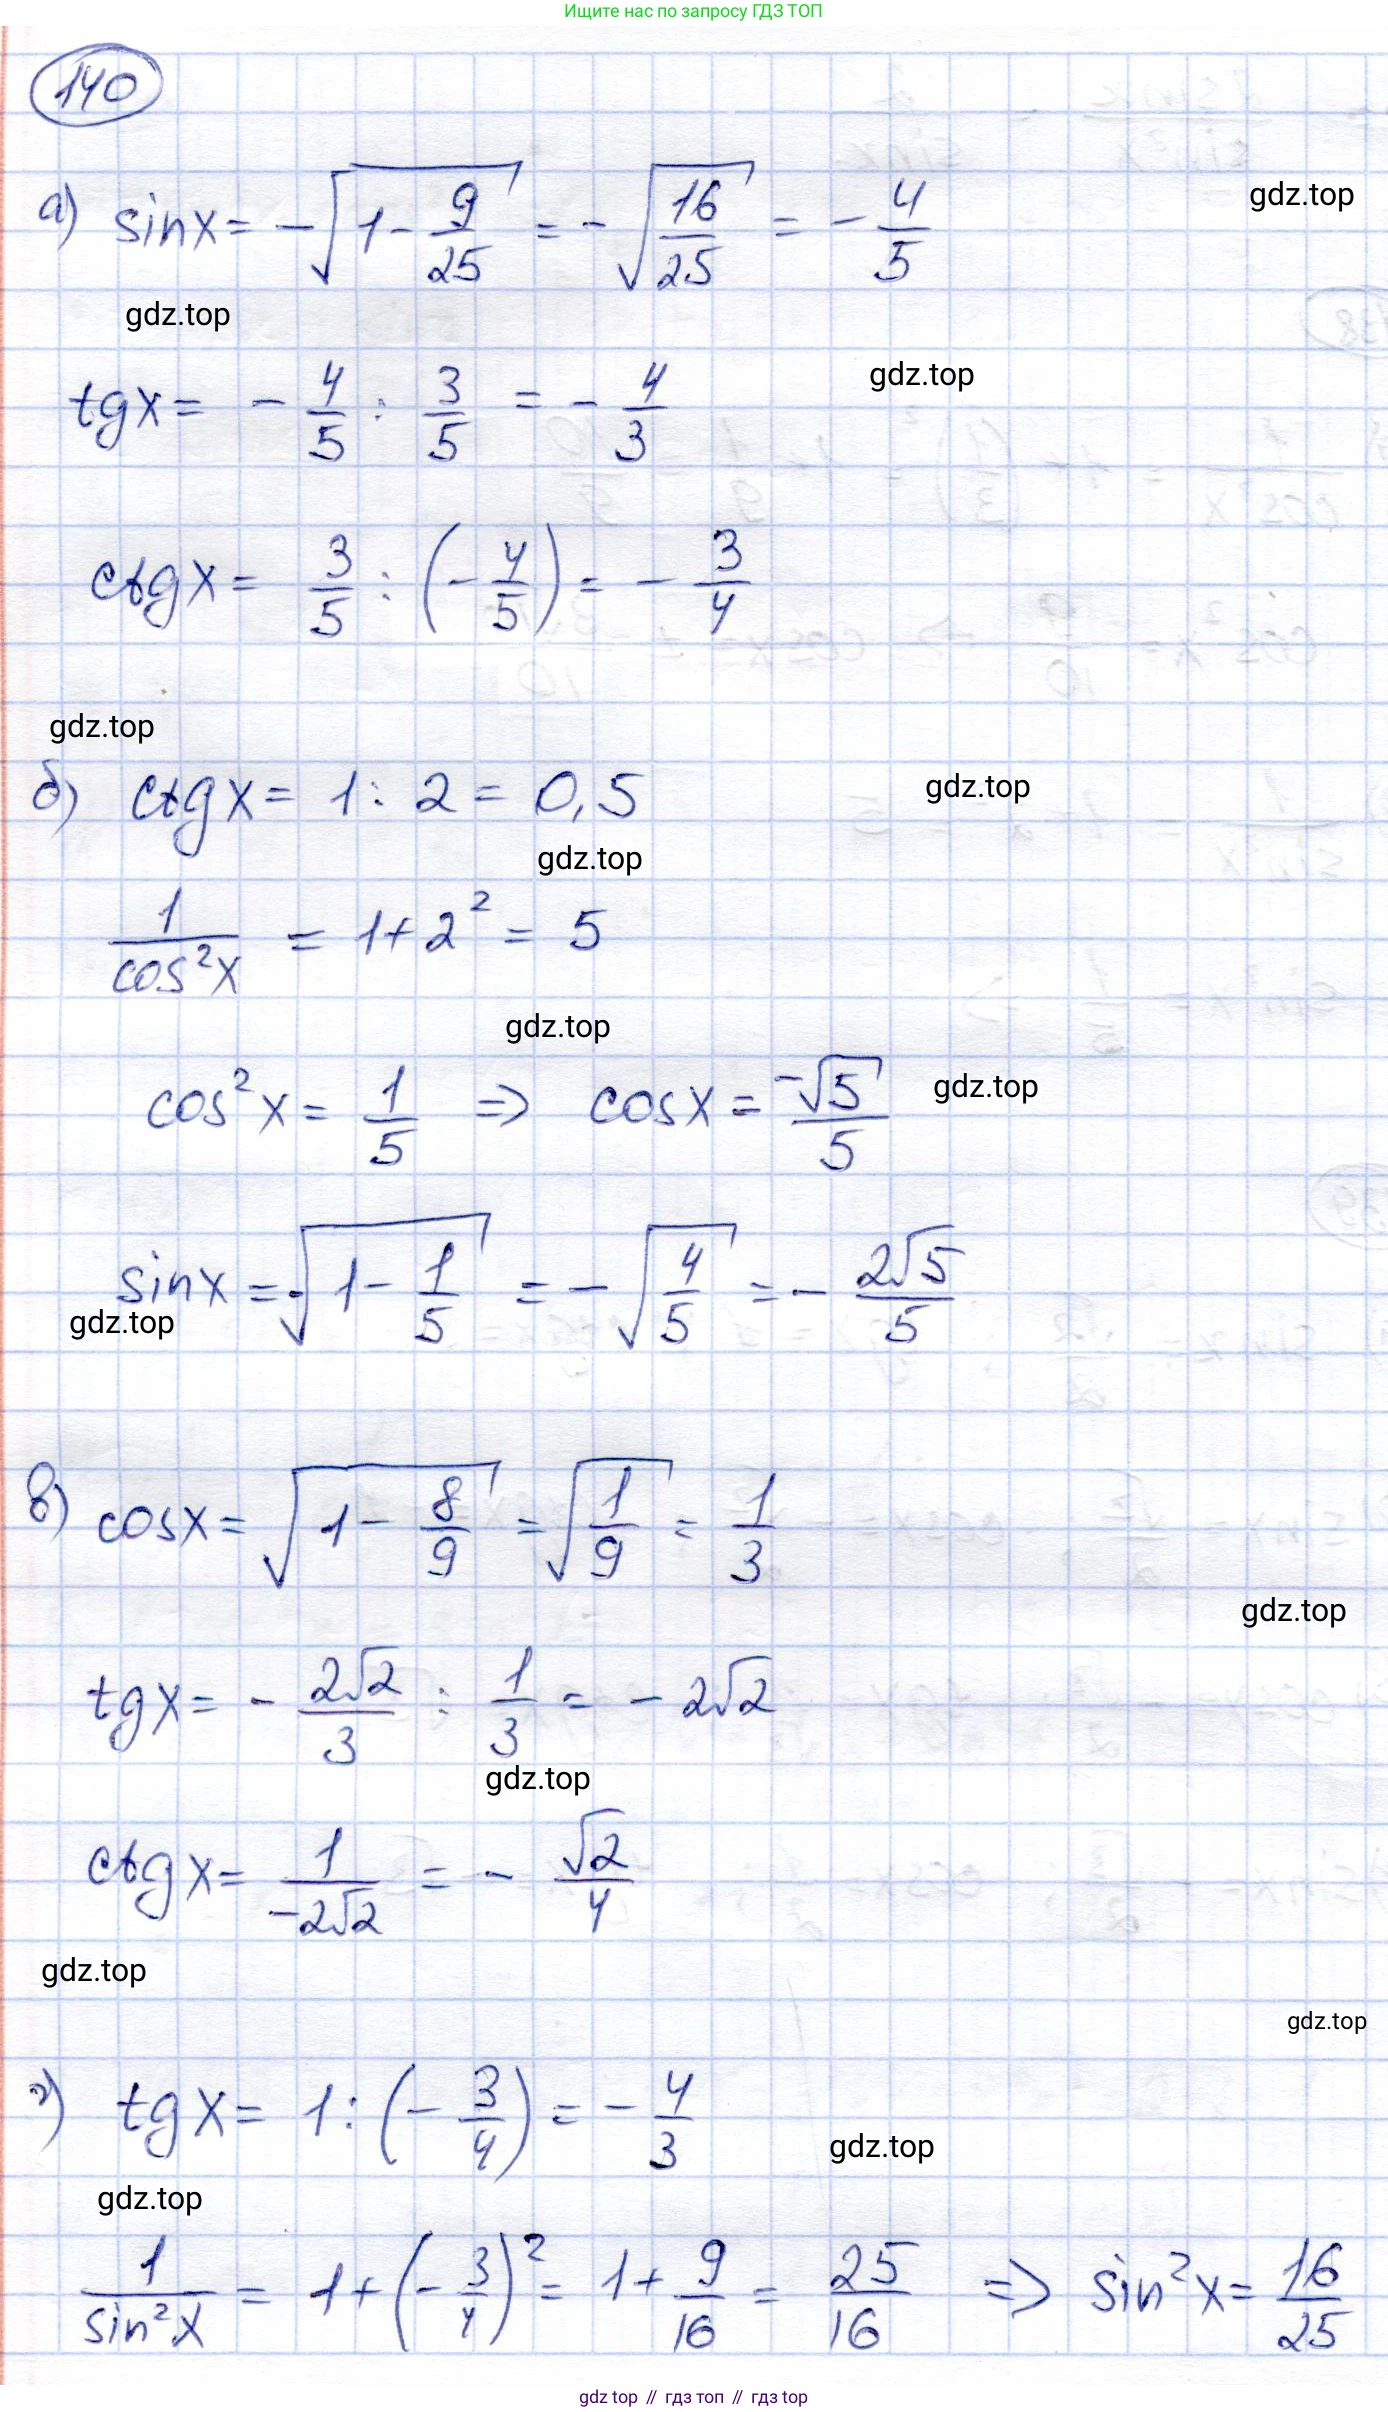 Ищите нас по запросу ГДЗ ТОП
140
а) sinx = -√(1 - 9/25) = -√(16/25) = -4/5
gdz.top
gdz.top
tgx = -4/5 : 3/5 = -4/3
gdz.top
ctgx = 3/5 : (-4/5) = -3/4
gdz.top
б) ctgx = 1 : 2 = 0,5
gdz.top
gdz.top
1/cos²x = 1 + 2² = 5
gdz.top
cos²x = 1/5 => cosx = -√5/5
gdz.top
sinx = -√(1 - 1/5) = -√(4/5) = -2√5/5
gdz.top
в) cosx = √(1 - 8/9) = √(1/9) = 1/3
gdz.top
tgx = -2√2/3 : 1/3 = -2√2
gdz.top
ctgx = 1/-2√2 = -√2/4
gdz.top
gdz.top
г) tgx = 1 : (-3/4) = -4/3
gdz.top
gdz.top
1/sin²x = 1 + (-3/4)² = 1 + 9/16 = 25/16 => sin²x = 16/25
gdz top // гдз топ // гдз top